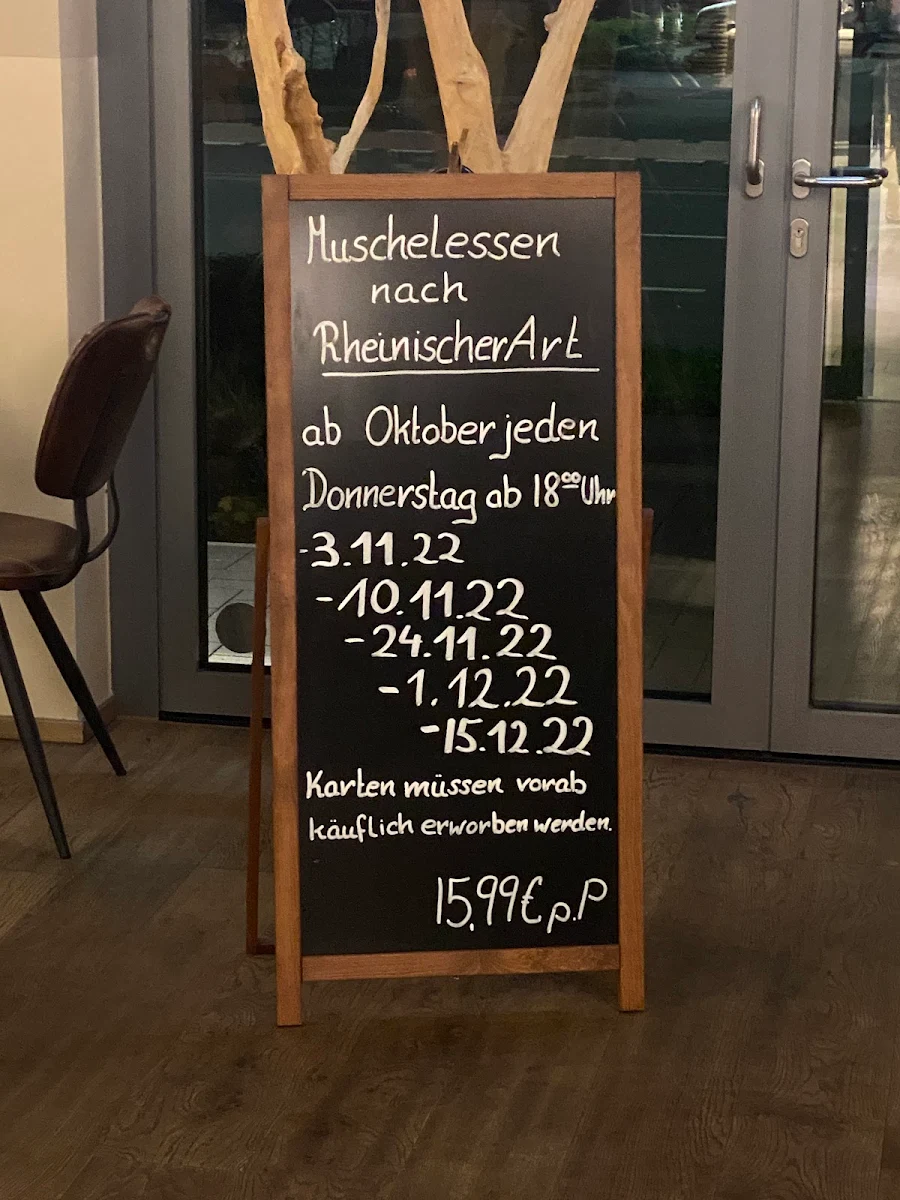 Muschelessen
nach
Rheinischer Art
ab Oktober jeden
Donnerstag ab 18⁰⁰ Uhr
-3.11.22
-10.11.22
-24.11.22
-1.12.22
-15.12.22
Karten müssen vorab
käuflich erworben werden.
15,99€ p.P